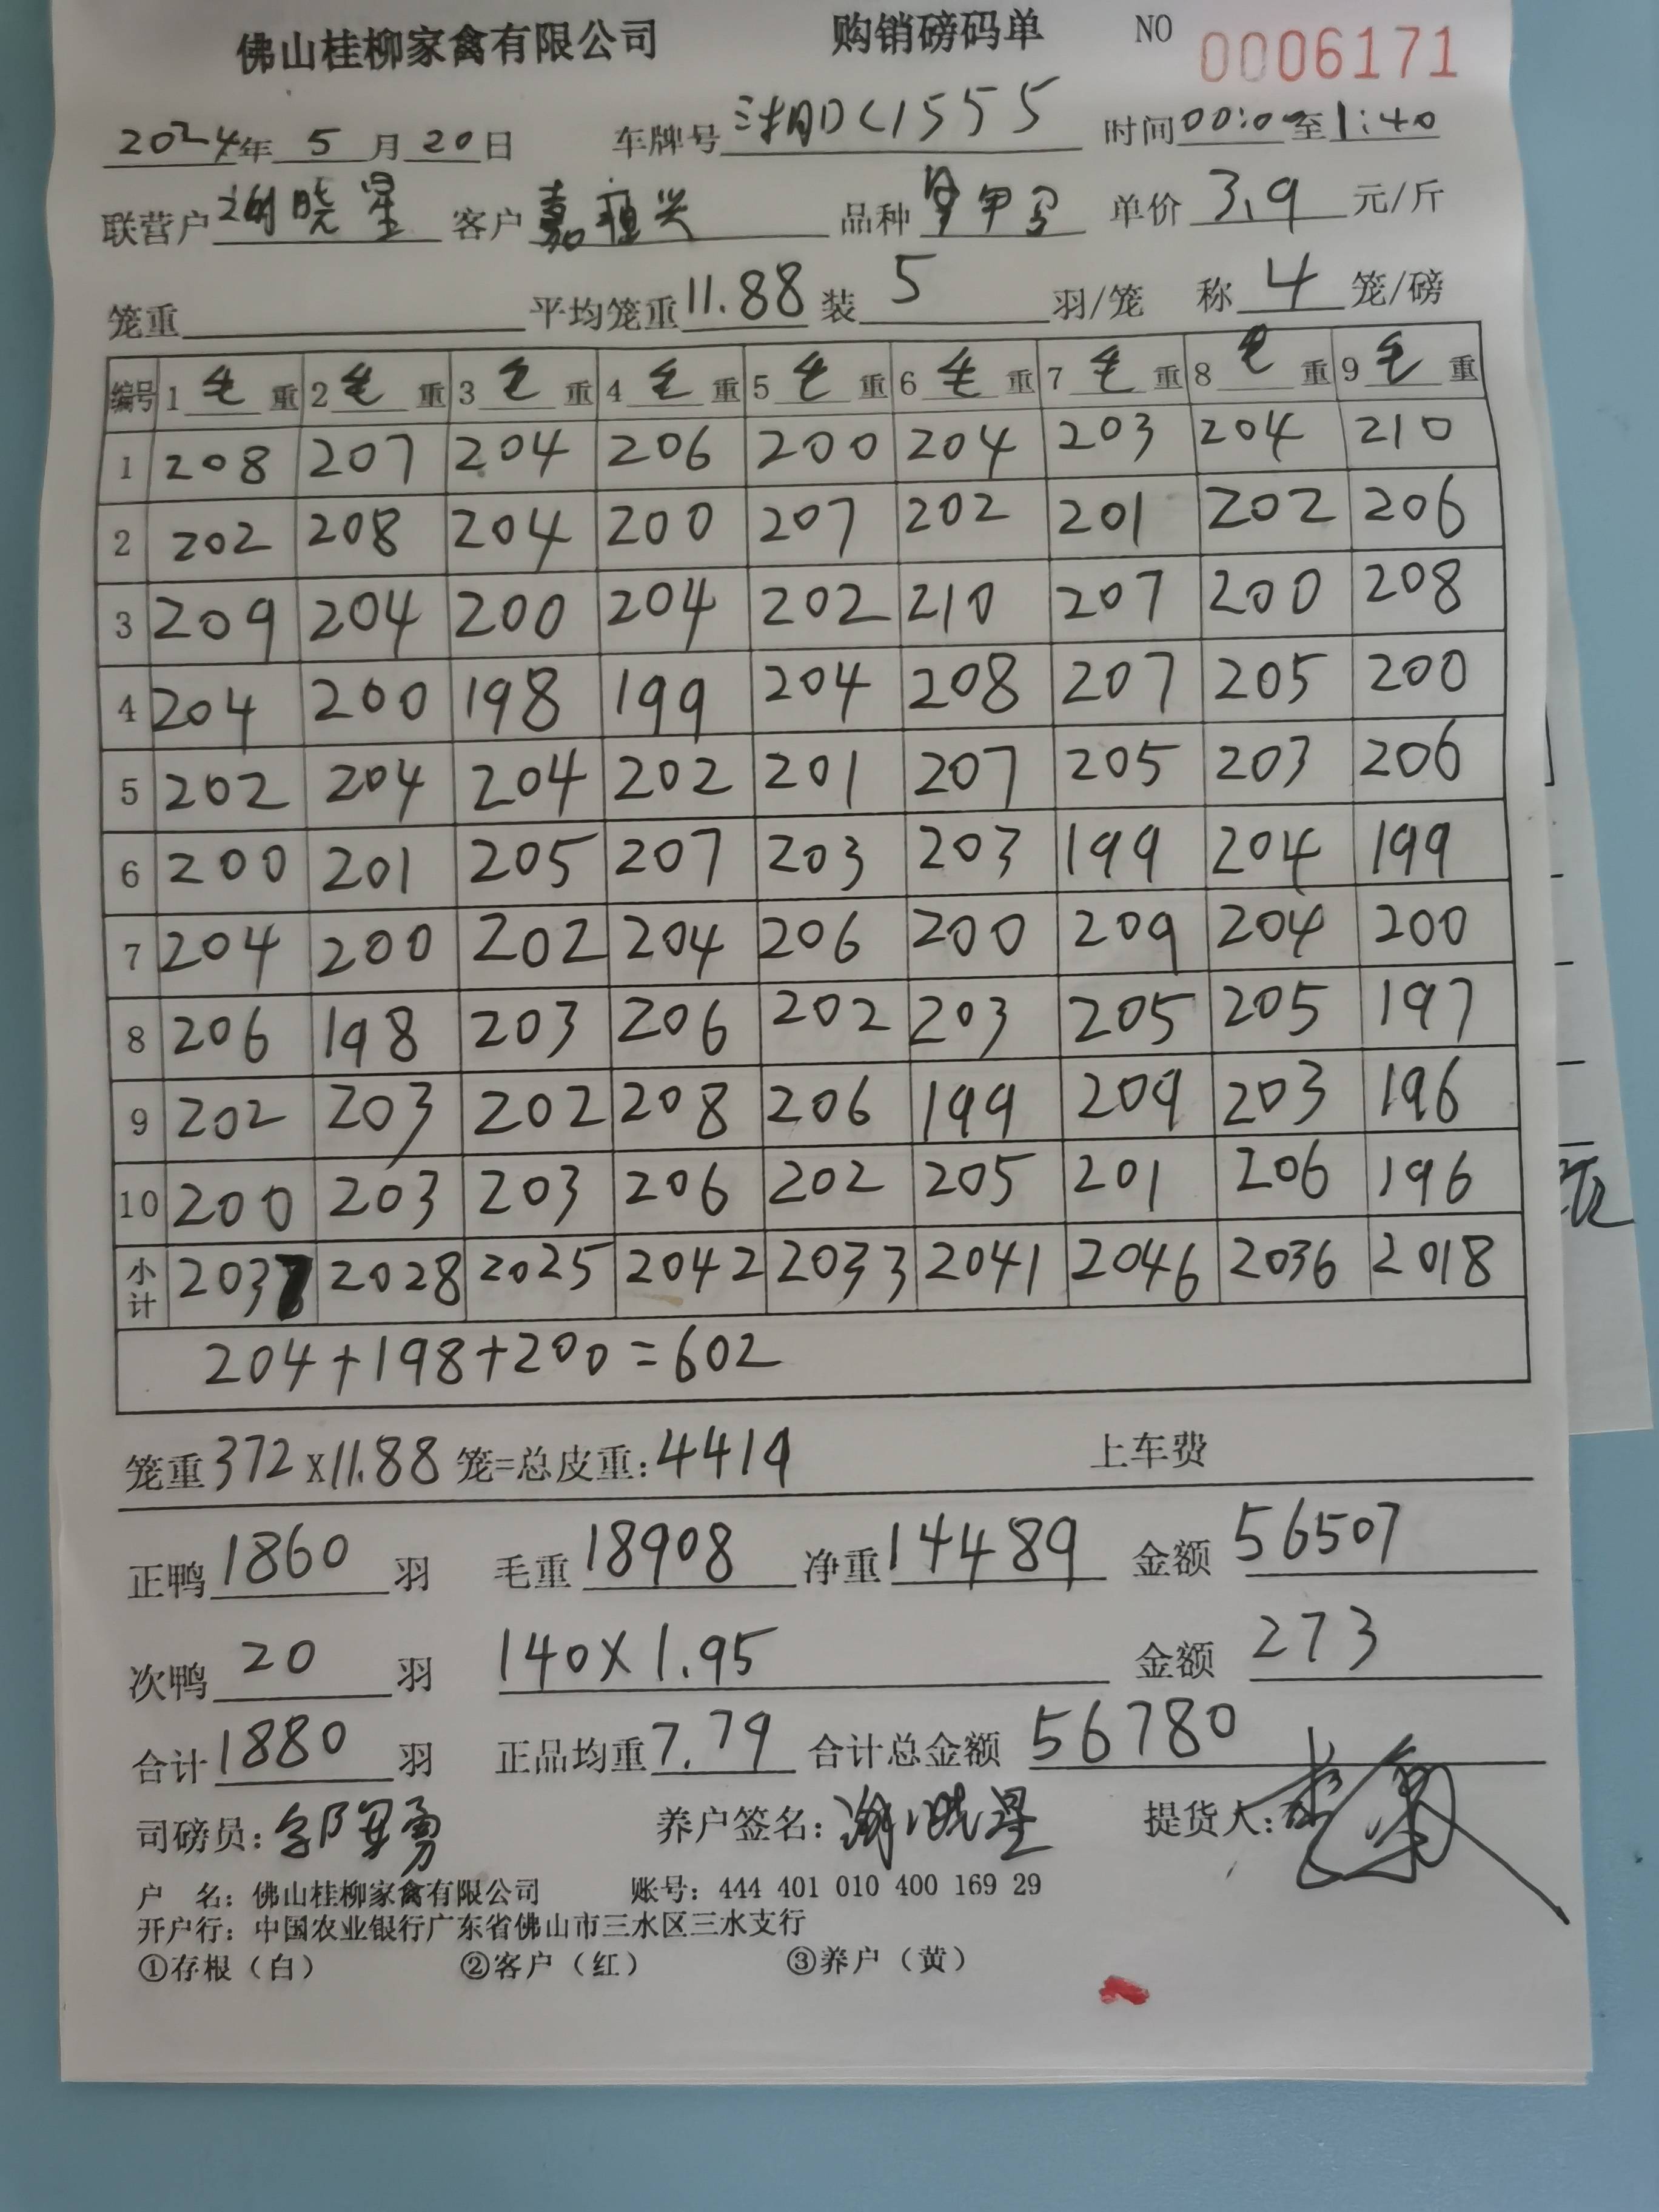 佛山桂柳家禽有限公司 购销磅码单 NO 0006171
2024年 5 月 20 日 车牌号 湘DC1555 时间 00:00 至 1:40
联营户 谢晓星 客户 嘉恒兴 品种 单价 3.9 元/斤
笼重 平均笼重 11.88 装 5 羽/笼 称 4 笼/磅
编号 1 毛 重 2 毛 重 3 毛 重 4 毛 重 5 毛 重 6 毛 重 7 毛 重 8 毛 重 9 毛 重
1 208 207 204 206 200 204 203 204 210
2 202 208 204 200 207 202 201 202 206
3 209 204 200 204 202 210 207 200 208
4 204 200 198 199 204 208 207 205 200
5 202 204 204 202 201 207 205 203 206
6 200 201 205 207 203 203 199 204 199
7 204 200 202 204 206 200 209 204 200
8 206 198 203 206 202 203 205 205 197
9 202 203 202 208 206 199 209 203 196
10 200 203 203 206 202 205 201 206 196
小计 2037 2028 2025 2042 2033 2041 2046 2036 2018
204+198+200=602
笼重 372x11.88 笼=总皮重: 4419 上车费
正鸭 1860 羽 毛重 18908 净重 14489 金额 56507
次鸭 20 羽 140x1.95 金额 273
合计 1880 羽 正品均重 7.79 合计总金额 56780
司磅员: 养户签名: 谢晓星 提货人:
户 名: 佛山桂柳家禽有限公司 账号: 444 401 010 400 169 29
开户行: 中国农业银行广东省佛山市三水区三水支行
①存根（白） ②客户（红） ③养户（黄）